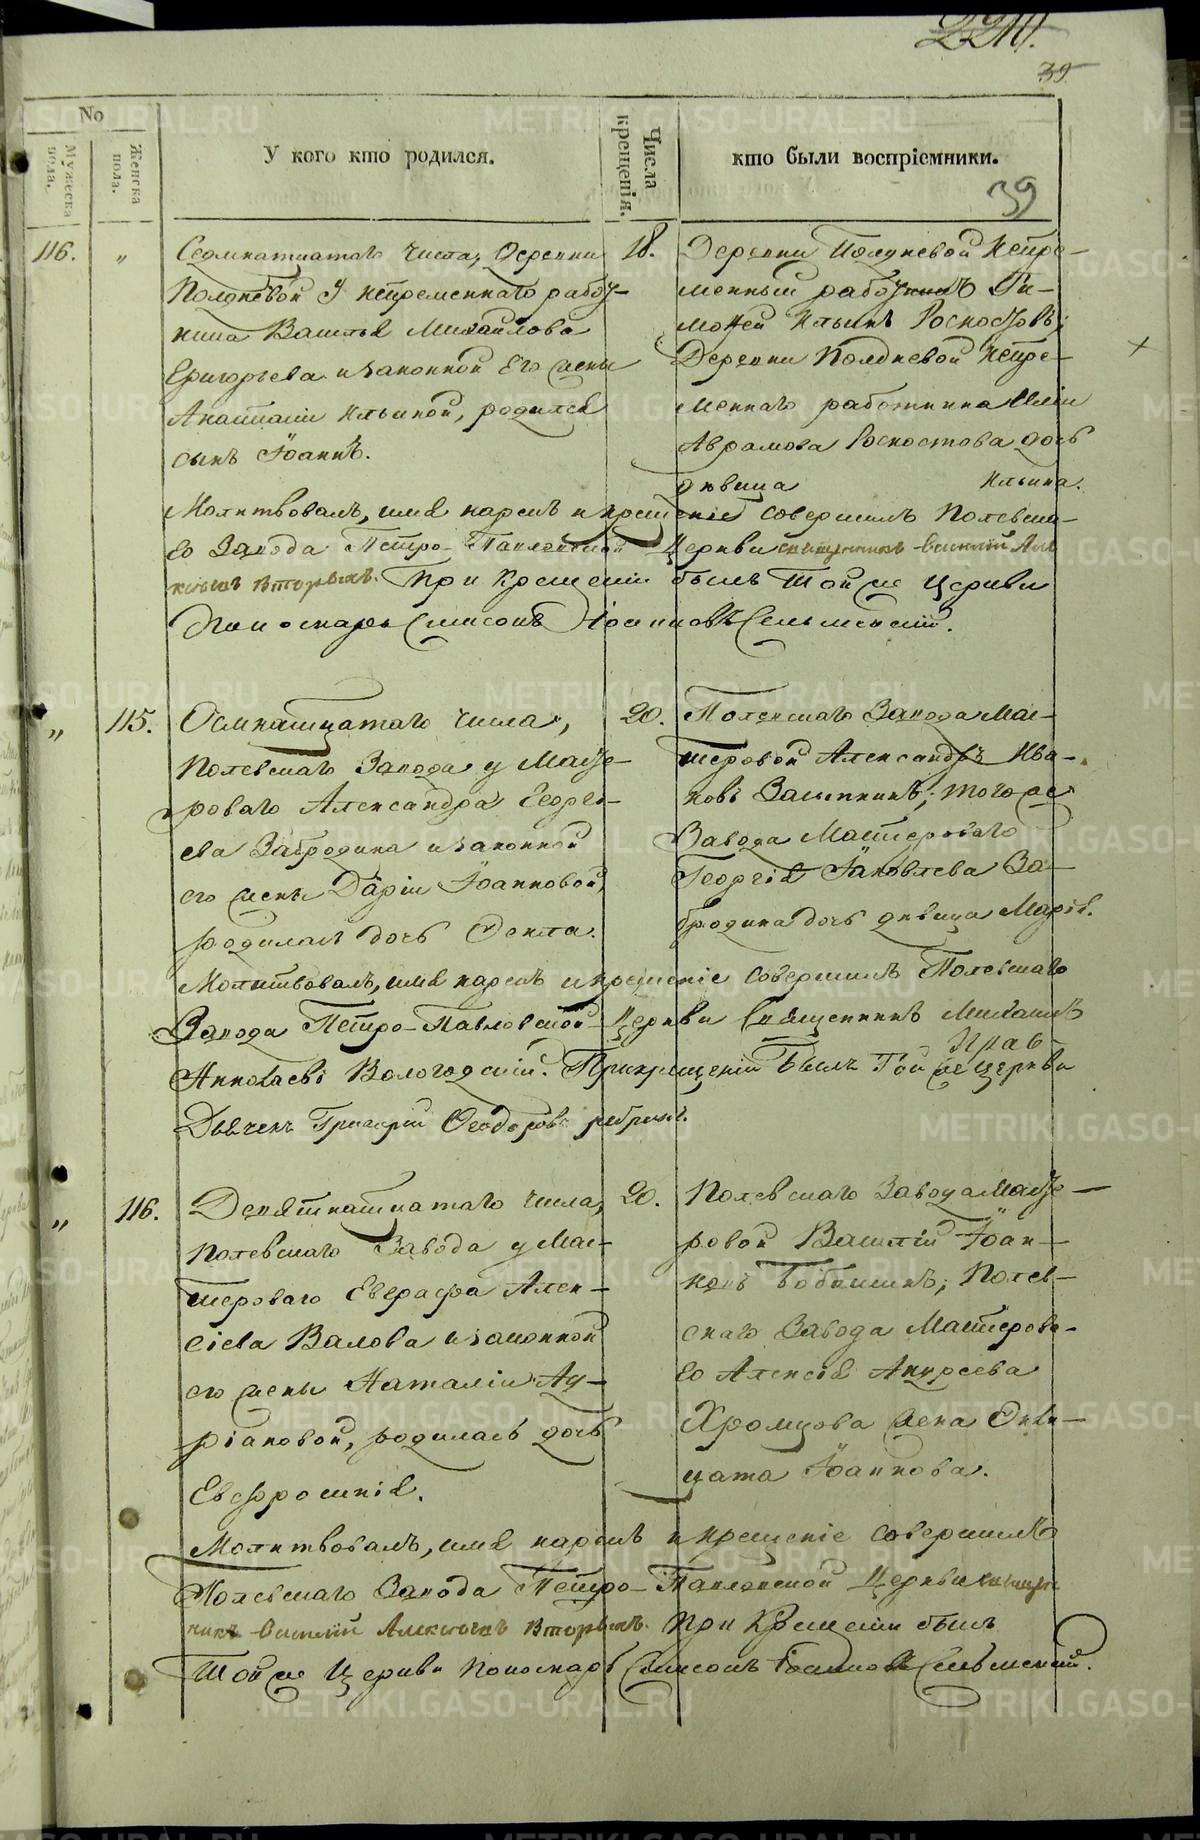 39
№
Мужеска пола.
Женска пола.
У кого кто родился.
Числа крещенія.
кто были воспріемники.
39
116.
„
Седмнатцатаго числа, Деревни
Полдневой у непременнаго работ-
ника Василья Михайлова
Григорьева и законной его жены
Анастасіи Ильиной, родился
сынъ Іоаннъ.
18.
Деревни Полдневой Непре-
менный работникъ Ти-
мофей Ильинъ Роскостовъ;
Деревни Полдневой непре-
меннаго работника Иліи
Аврамова Роскостова дочь
девица
Ильина.
Молитвовалъ, имя нареклъ и крещеніе совершилъ Полевска-
го Завода Петро-Павловской Церкви священникъ Василій
Вторыхъ. При крещеніи былъ той же Церкви
Пономарь Симеонъ Іоанновъ Сельменскій.
„
115.
Осмнатцатаго числа,
Полевскаго Завода у Масте-
роваго Александра Георгі-
ева Забродина и законной
его жены Даріи Іоанновой,
родилась дочь Фекла.
20.
Полевскаго Завода Мас-
теровой Александръ Ива-
новъ; того же
Завода Мастероваго
Георгія Іаковлева За-
бродина дочь девица Марія.
Молитвовалъ, имя нареклъ и крещеніе совершилъ Полевскаго
Завода Петро-Павловской Церкви Священникъ Михаилъ
Николаевъ Вологодскій. При крещеніи былъ той же Церкви
Дьячекъ Григорій Феодоровъ
„
116.
Девятнатцатаго числа,
Полевскаго Завода у Мас-
тероваго Евграфа Алек-
сіева Валова и законной
его жены Наталіи Ад-
ріановой, родилась дочь
Евфросинія.
20.
Полевскаго Завода Масте-
ровой Василій Іоан-
новъ Бабошинъ; Полев-
скаго Завода Мастерова-
го Алексія Андреева
Хромцова жена
Іоаннова.
Молитвовалъ, имя нареклъ и крещеніе совершилъ
Полевскаго Завода Петро-Павловской Церкви священ-
никъ Василій Вторыхъ. При крещеніи былъ
той же Церкви Пономарь Симеонъ Іоанновъ Сельменскій.
METRIKI.GASO-URAL.RU